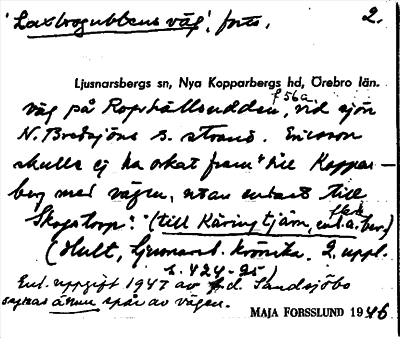 'Laxbrogubbens väg', forts. 2.
Ljusnarsbergs sn, Nya Kopparbergs hd, Örebro län.
väg på Ropshällsudden, f 56a. vid sjön
N. Bredsjöns s. strand. Ericsson
skulle ej ha orkat fram "till Koppar-
berg med vägen, utan endast till
Skogstorp". (till Käringtjärn, enl. a. ber.)
(Hult, Ljusnarsb. Krönika. 2. uppl.
s. 424-25)
Enl. uppgift 1947 av f.d. Landsjöbo
saknas ännu spår av vägen.
MAJA FORSSLUND 1946